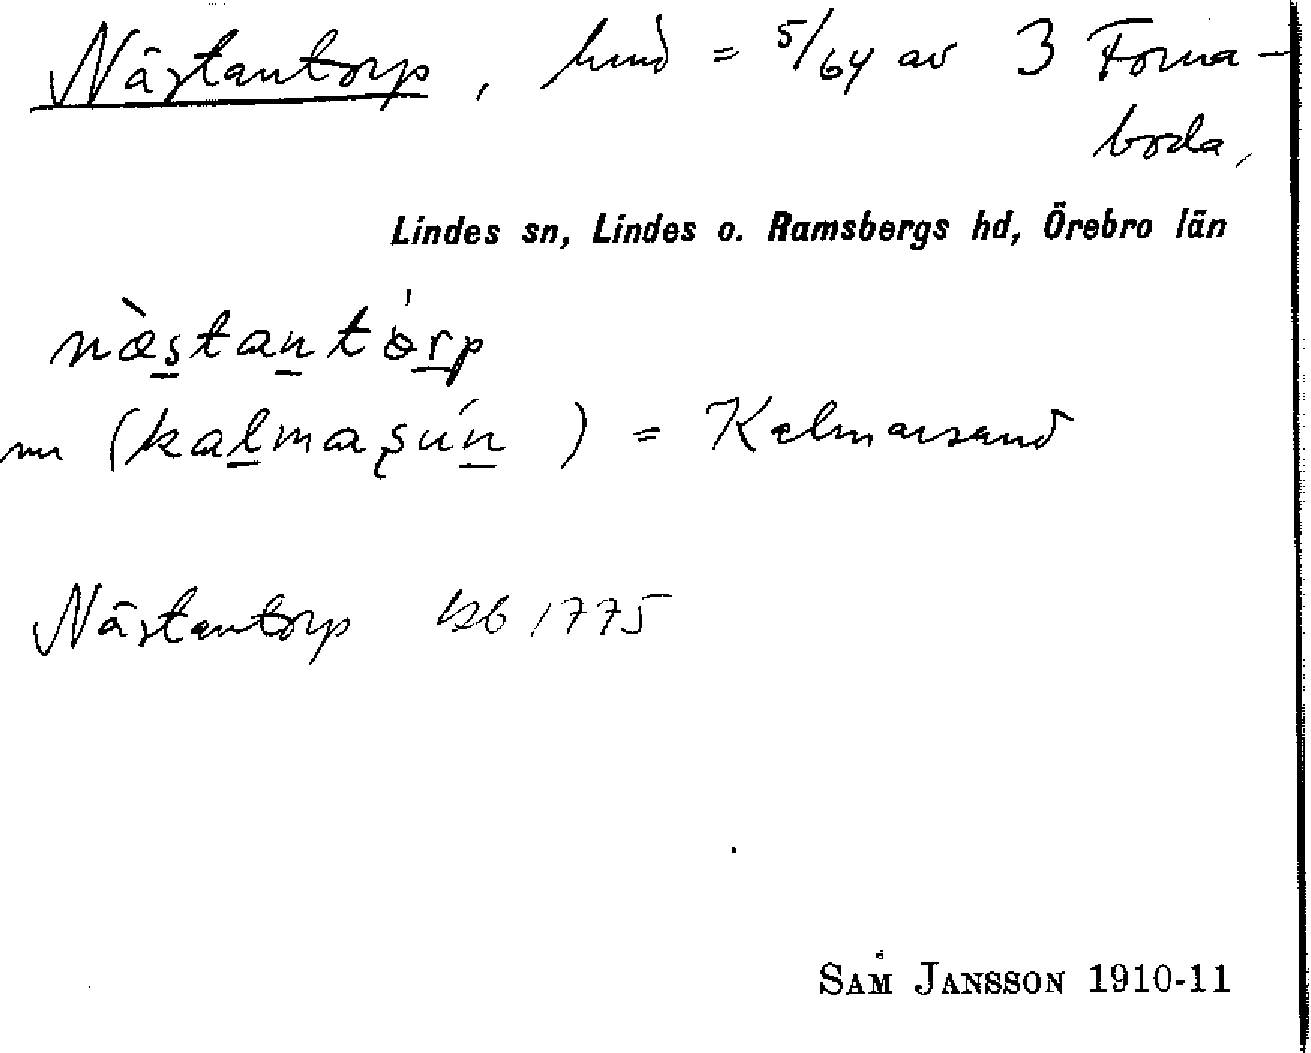 Nästantorp, hmd = 5/64 av 3 Forna-
boda,
Lindes sn, Lindes o. Ramsbergs hd, Örebro län
næ̀stantórp
nu (kalmaşún) = Kalmarsund
Nästantorp kb 1775
SAM JANSSON 1910-11